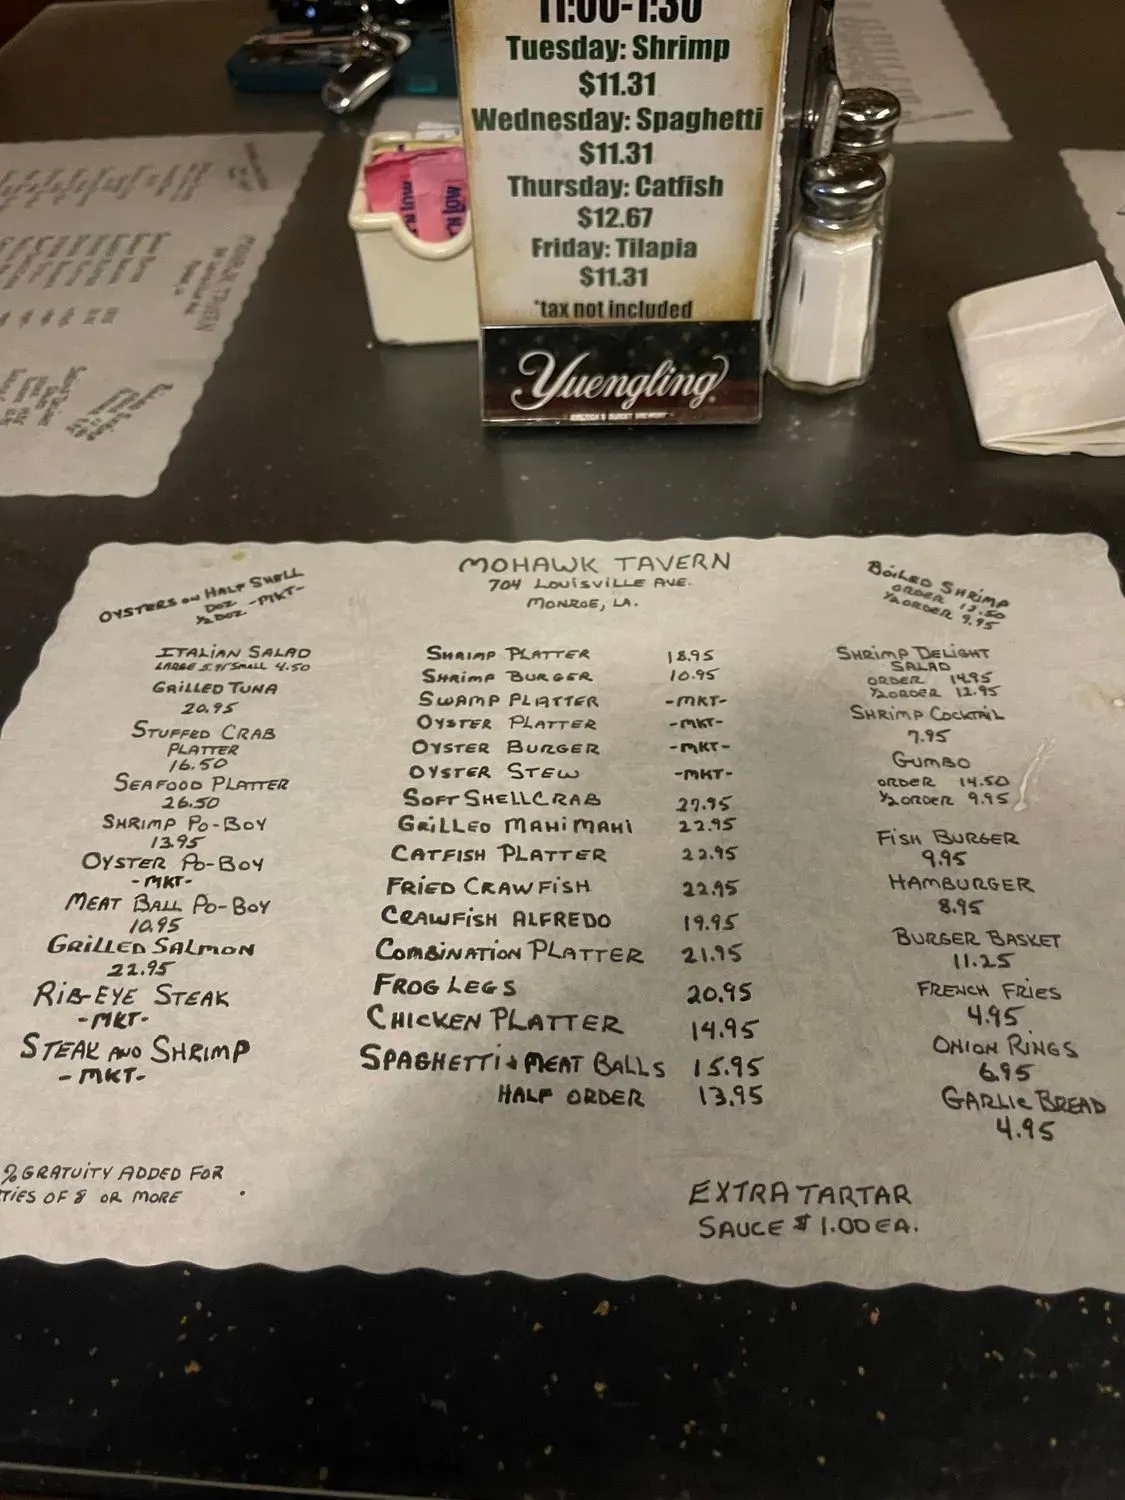 11:00-1:30
Tuesday: Shrimp
$11.31
Wednesday: Spaghetti
$11.31
Thursday: Catfish
$12.67
Friday: Tilapia
$11.31
*tax not included
Yuengling
AMERICA'S OLDEST BREWERY
MOHAWK TAVERN
704 LOUISVILLE AVE.
MONROE, LA.
OYSTERS ON HALF SHELL
DOZ. -MKT-
1/2 DOZ.
ITALIAN SALAD
LARGE 5.95 SMALL 4.50
GRILLED TUNA
20.95
STUFFED CRAB
PLATTER
16.50
SEAFOOD PLATTER
26.50
SHRIMP PO-BOY
13.95
OYSTER PO-BOY
-MKT-
MEAT BALL PO-BOY
10.95
GRILLED SALMON
22.95
RIB-EYE STEAK
-MKT-
STEAK AND SHRIMP
-MKT-
% GRATUITY ADDED FOR
TIES OF 8 OR MORE
SHRIMP PLATTER 18.95
SHRIMP BURGER 10.95
SWAMP PLATTER -MKT-
OYSTER PLATTER -MKT-
OYSTER BURGER -MKT-
OYSTER STEW -MKT-
SOFT SHELL CRAB 27.95
GRILLED MAHI MAHI 22.95
CATFISH PLATTER 22.95
FRIED CRAWFISH 22.95
CRAWFISH ALFREDO 19.95
COMBINATION PLATTER 21.95
FROG LEGS 20.95
CHICKEN PLATTER 14.95
SPAGHETTI & MEAT BALLS 15.95
HALF ORDER 13.95
BOILED SHRIMP
ORDER 17.50
1/2 ORDER 9.95
SHRIMP DELIGHT
SALAD
ORDER 14.95
1/2 ORDER 12.95
SHRIMP COCKTAIL
7.95
GUMBO
ORDER 14.50
1/2 ORDER 9.95
FISH BURGER
9.95
HAMBURGER
8.95
BURGER BASKET
11.25
FRENCH FRIES
4.95
ONION RINGS
6.95
GARLIC BREAD
4.95
EXTRA TARTAR
SAUCE $1.00 EA.